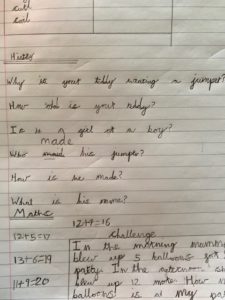 Why is your teddy wearing a jumper?
How old is your teddy?
Is it a girl or a boy?
made
Who his jumper?
How is he made?
What is his name?
Maths
12+4=16
12+5=17
13+6=19
11+9=20
Challenge
In the morning
blew up 5 balloons for
party. In the afternoon
blew up 12 more. How
balloons is at my